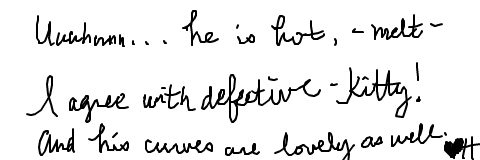 Uuuhmm... he is hot, -melt-
I agree with defective-Kitty!
And his curves are lovely as well. ♥H